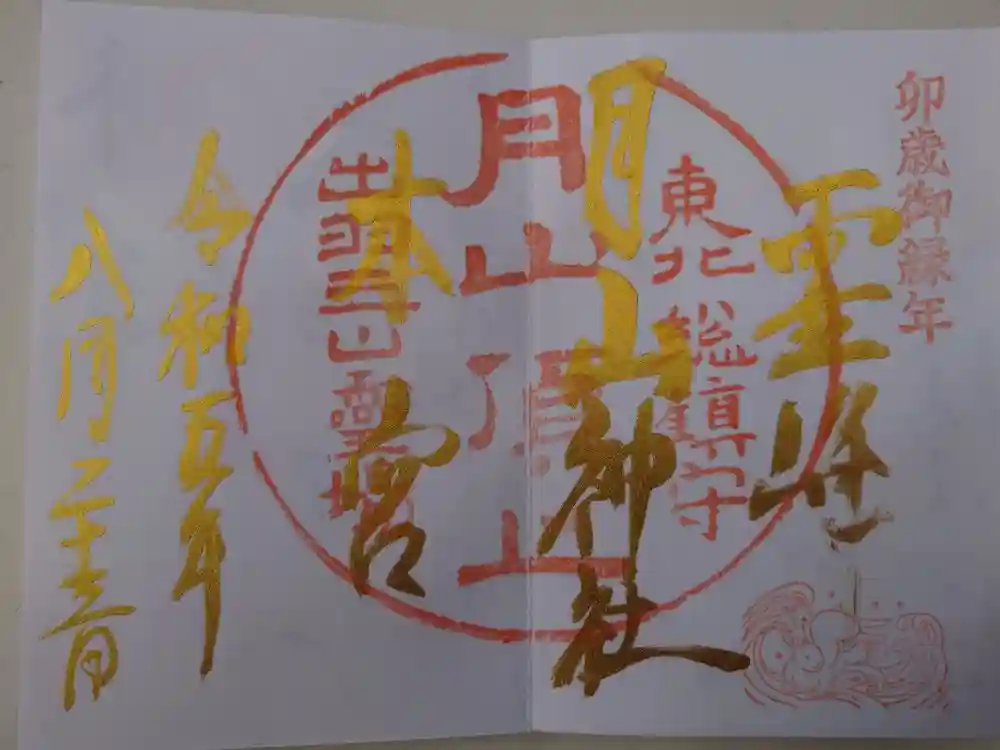 卯歳御縁年
霊峰
東北総鎮守
月山神社
月山頂上
本宮
出羽三山霊場
令和五年
八月二十三日